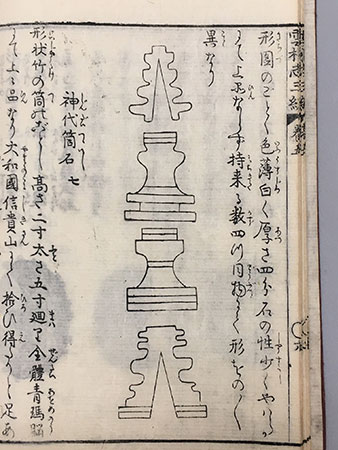 雲根志三編 巻五
形図のごとく色薄白く厚さ四分石の性少しやハらか
にて上品ならず持来る数四つ同物にて形をの〳〵
異なり
神代筒石 七
じんだいつゝいし
形状竹の筒のごとし高さ二寸太さ五寸廻り全體青瑪脳
にて上品なり大和國信貴山にて拾ひ得たりし足あ